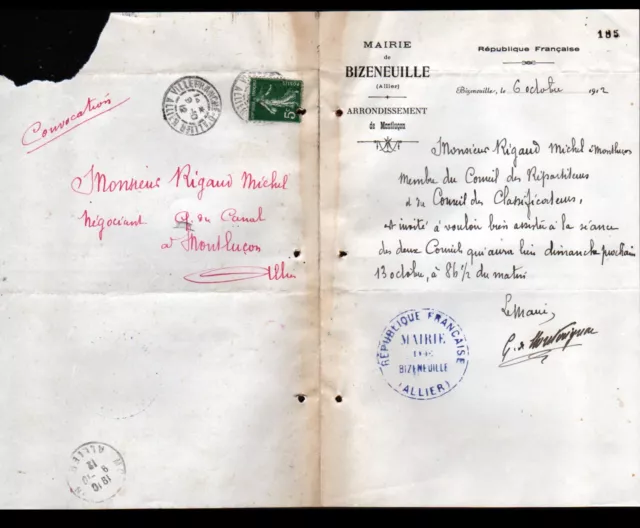 Convocation
Monsieur Rigaud Michel
Négociant Q. du Canal
à Montluçon
Allier
VILLEFRANCHE
ALLIER
5
185
MAIRIE
de
BIZENEUILLE
(Allier)
ARRONDISSEMENT
de Montluçon
République Française
Bizeneuille, le 6 octobre 1912
Monsieur Rigaud Michel à Montluçon
Membre du Conseil des Répartiteurs
et du Conseil des Classificateurs,
est invité à vouloir bien assister à la séance
des deux Conseils qui aura lieu dimanche prochain
13 octobre, à 8h 1/2 du matin
Le Maire,
G. de
RÉPUBLIQUE FRANÇAISE
MAIRIE
DE
BIZENEUILLE
(ALLIER)
ALLIER